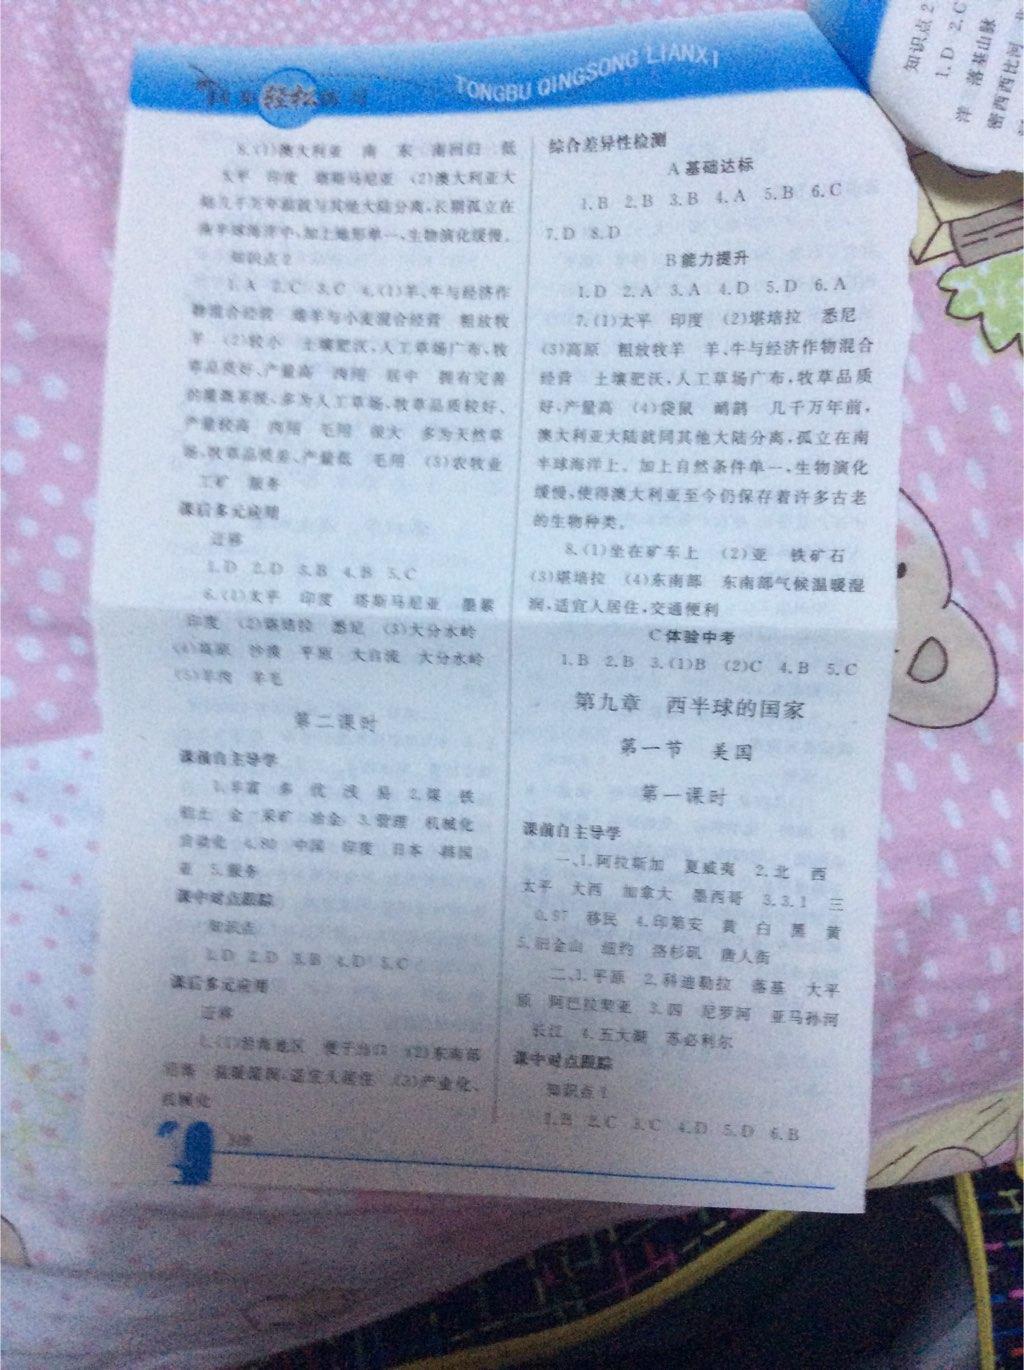 同步轻松练习
TONGBU QINGSONG LIANXI
8.(1)澳大利亚 南 东 南回归 低
太平 印度 塔斯马尼亚 (2)澳大利亚大
陆几千万年前就与其他大陆分离,长期孤立在
南半球海洋中,加上地形单一,生物演化缓慢。
知识点2
1.A 2.C 3.C 4.(1)羊、牛与经济作
物混合经营 绵羊与小麦混合经营 粗放牧
羊 (2)较小 土壤肥沃,人工草场广布,牧
草品质好、产量高 肉用 居中 拥有完善
的灌溉系统、多为人工草场、牧草品质较好、
产量较高 肉用 毛用 很大 多为天然草
场、牧草品质差、产量低 毛用 (3)农牧业
工矿 服务
课后多元应用
迁移
1.D 2.D 3.B 4.B 5.C
6.(1)太平 印度 塔斯马尼亚 墨累
印度 (2)堪培拉 悉尼 (3)大分水岭
(4)高原 沙漠 平原 大自流 大分水岭
(5)羊肉 羊毛
第二课时
课前自主导学
1.丰富 多 优 浅 易 2.煤 铁
铝土 金 采矿 冶金 3.管理 机械化
自动化 4.80 中国 印度 日本 韩国
亚 5.服务
课中对点跟踪
知识点
1.D 2.D 3.B 4.D 5.C
课后多元应用
迁移
1.(1)沿海地区 便于出口 (2)东南部
沿海 温暖湿润,适宜人居住 (3)产业化、
机械化
综合差异性检测
A 基础达标
1.B 2.B 3.B 4.A 5.B 6.C
7.D 8.D
B 能力提升
1.D 2.A 3.A 4.D 5.D 6.A
7.(1)太平 印度 (2)堪培拉 悉尼
(3)高原 粗放牧羊 羊、牛与经济作物混合
经营 土壤肥沃,人工草场广布,牧草品质
好,产量高 (4)袋鼠 鸸鹋 几千万年前,
澳大利亚大陆就同其他大陆分离,孤立在南
半球海洋上。加上自然条件单一,生物演化
缓慢,使得澳大利亚至今仍保存着许多古老
的生物种类。
8.(1)坐在矿车上 (2)亚 铁矿石
(3)堪培拉 (4)东南部 东南部气候温暖湿
润,适宜人居住,交通便利
C 体验中考
1.B 2.B 3.(1)B (2)C 4.B 5.C
第九章 西半球的国家
第一节 美国
第一课时
课前自主导学
一、1.阿拉斯加 夏威夷 2.北 西
太平 大西 加拿大 墨西哥 3.3.1 三
0.97 移民 4.印第安 黄 白 黑 黄
5.旧金山 纽约 洛杉矶 唐人街
二、1.平原 2.科迪勒拉 落基 大平
原 阿巴拉契亚 3.四 尼罗河 亚马孙河
长江 4.五大湖 苏必利尔
课中对点跟踪
知识点1
1.B 2.C 3.C 4.D 5.D 6.B
知识点2
1.D 2.C
洋 落基山脉
密西西比河